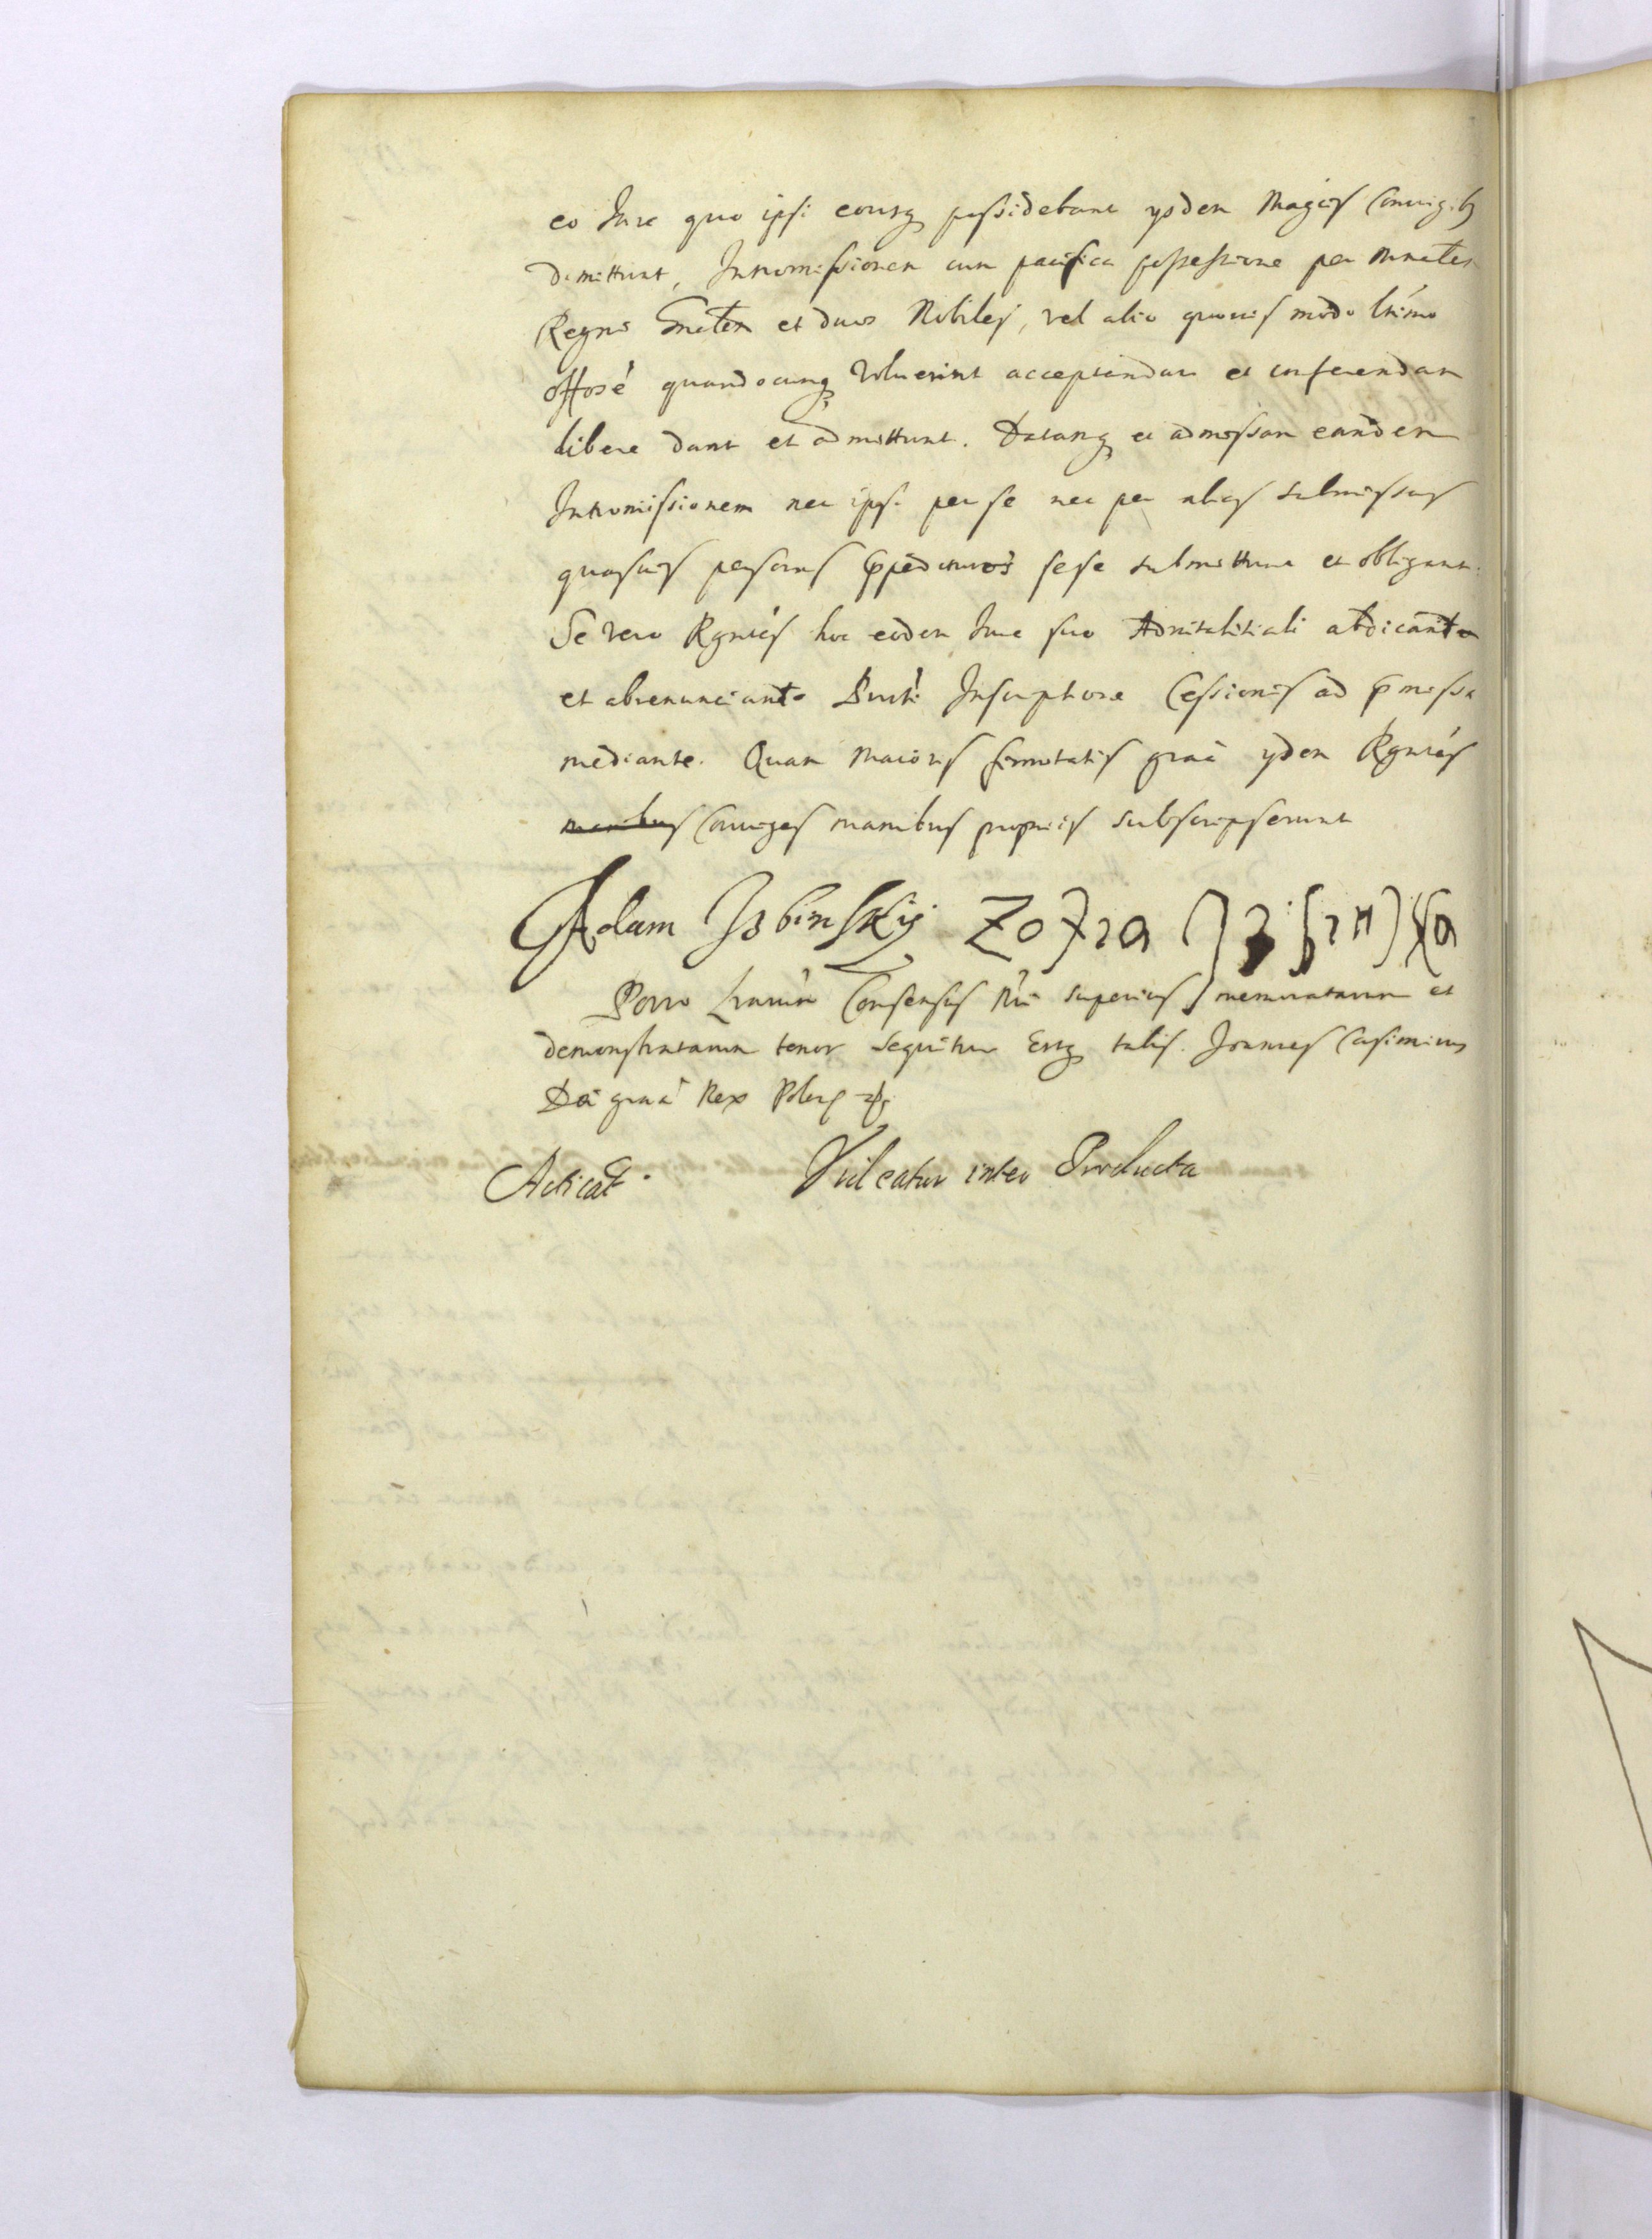 eo Jure quo ipsi eousq possidebant ysdem Magcis Coniugibq
dimittunt, Intromissionem cum pacifica possessione per Mnrtem
Regni Gnalem et duos Nobiles, vel alio quouis modo ltimo
offose quandocunq Voluerint acceptandam et conferendam
libere dant et admittunt. Datamq et admissam eandem
Intromissionem nec ipsi per se nec per alias submissas
quasuis personas impedituros sese submittunt et obligant.
Se vero Rgntes hoc eodem Jure suo Aduitalitiali abdicant
et abrenunciant Inscriptione Cessionis ad pmissa
mediante. Quam maioris firmitatis graa ydem Rgntes
manibus Coniuges manibus propriis subscripserunt
Adam Izbinskij Zofia
Porro Lrarum Consensus Nri superius memoratarum et
demonstratarum tenor sequitur Estq talis. Joannes Casimirus
Dei graa Rex Polerq
Acticat. Videatur inter Producta